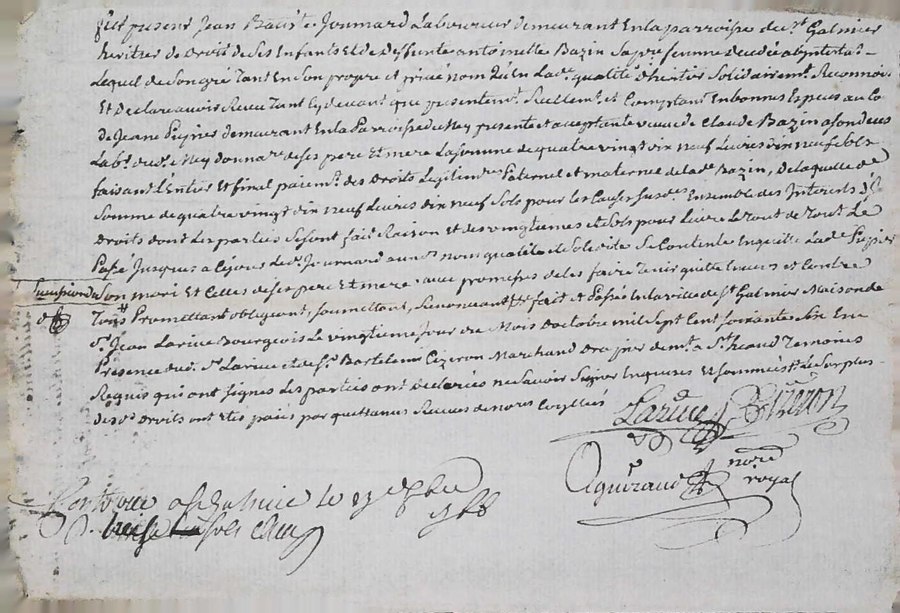 fut present Jean Baist. Joumard Laboureur demeurant En la parroisse de st. Galmier
heritier de Droit de ses Infants Et de Deffunte antoinette Bazin sa pre. femme decedée abintestat
Lequel de son gré tant En son propre et privé nom qu'En lad. qualité d'heritier solidairemt. Reconnoit
Et Declare avoir Receu tant cy devant que presentemt. Reellemt. et Comptant En bonnes Especes au Co
de Jeane Pupier demeurant En la Parroisse de Ney presente et acceptante veuve de Claude Bazin
Labr. dud. Ney donnare. de ses pere Et mere La somme de quatre vingt dix neuf Livres dix neuf sols
faisant L'entier Et final paiemt. des Droits Legitimes Paternel et maternel de lad. Bazin, De laquelle de
somme de quatre vingt dix neuf Livres dix neuf sols pour les Causes susd. Ensemble des Interests
Droits dont Les parties se sont fait Raison Et des vingtiemes et sols pour Livre Le tout de tout Le
Passé Jusques a Ce jour led. Joumard aud. nom qualité et solidité se Contente En quitte Lad. Pupier
son mari Et Celles de ses pere Et mere avec promesses de les faire tenir quitte Envers et Contre
Tous Promettant obligeant, soumettant, Renonceant fait et Passé En la ville de st. Galmier Maison de
sr. Jean Larive Bourgeois Le vingtieme jour du Mois d'octobre mil sept Cent soixante six En
Presence dud. sr. Larive et de sr. Bartelemi Cizeron Marchand Drapier demt. a st. temoins
Requis qui ont signés Les parties ont Declarées ne savoir signer Enquises Et sommées Le surplus
desd. Droits ont Etés paiés par quittances Receues de nore. Soussé
Larive Cizeron
Aguiraud nore.
royal
Controllé a st Galmier le
1766
treise sols